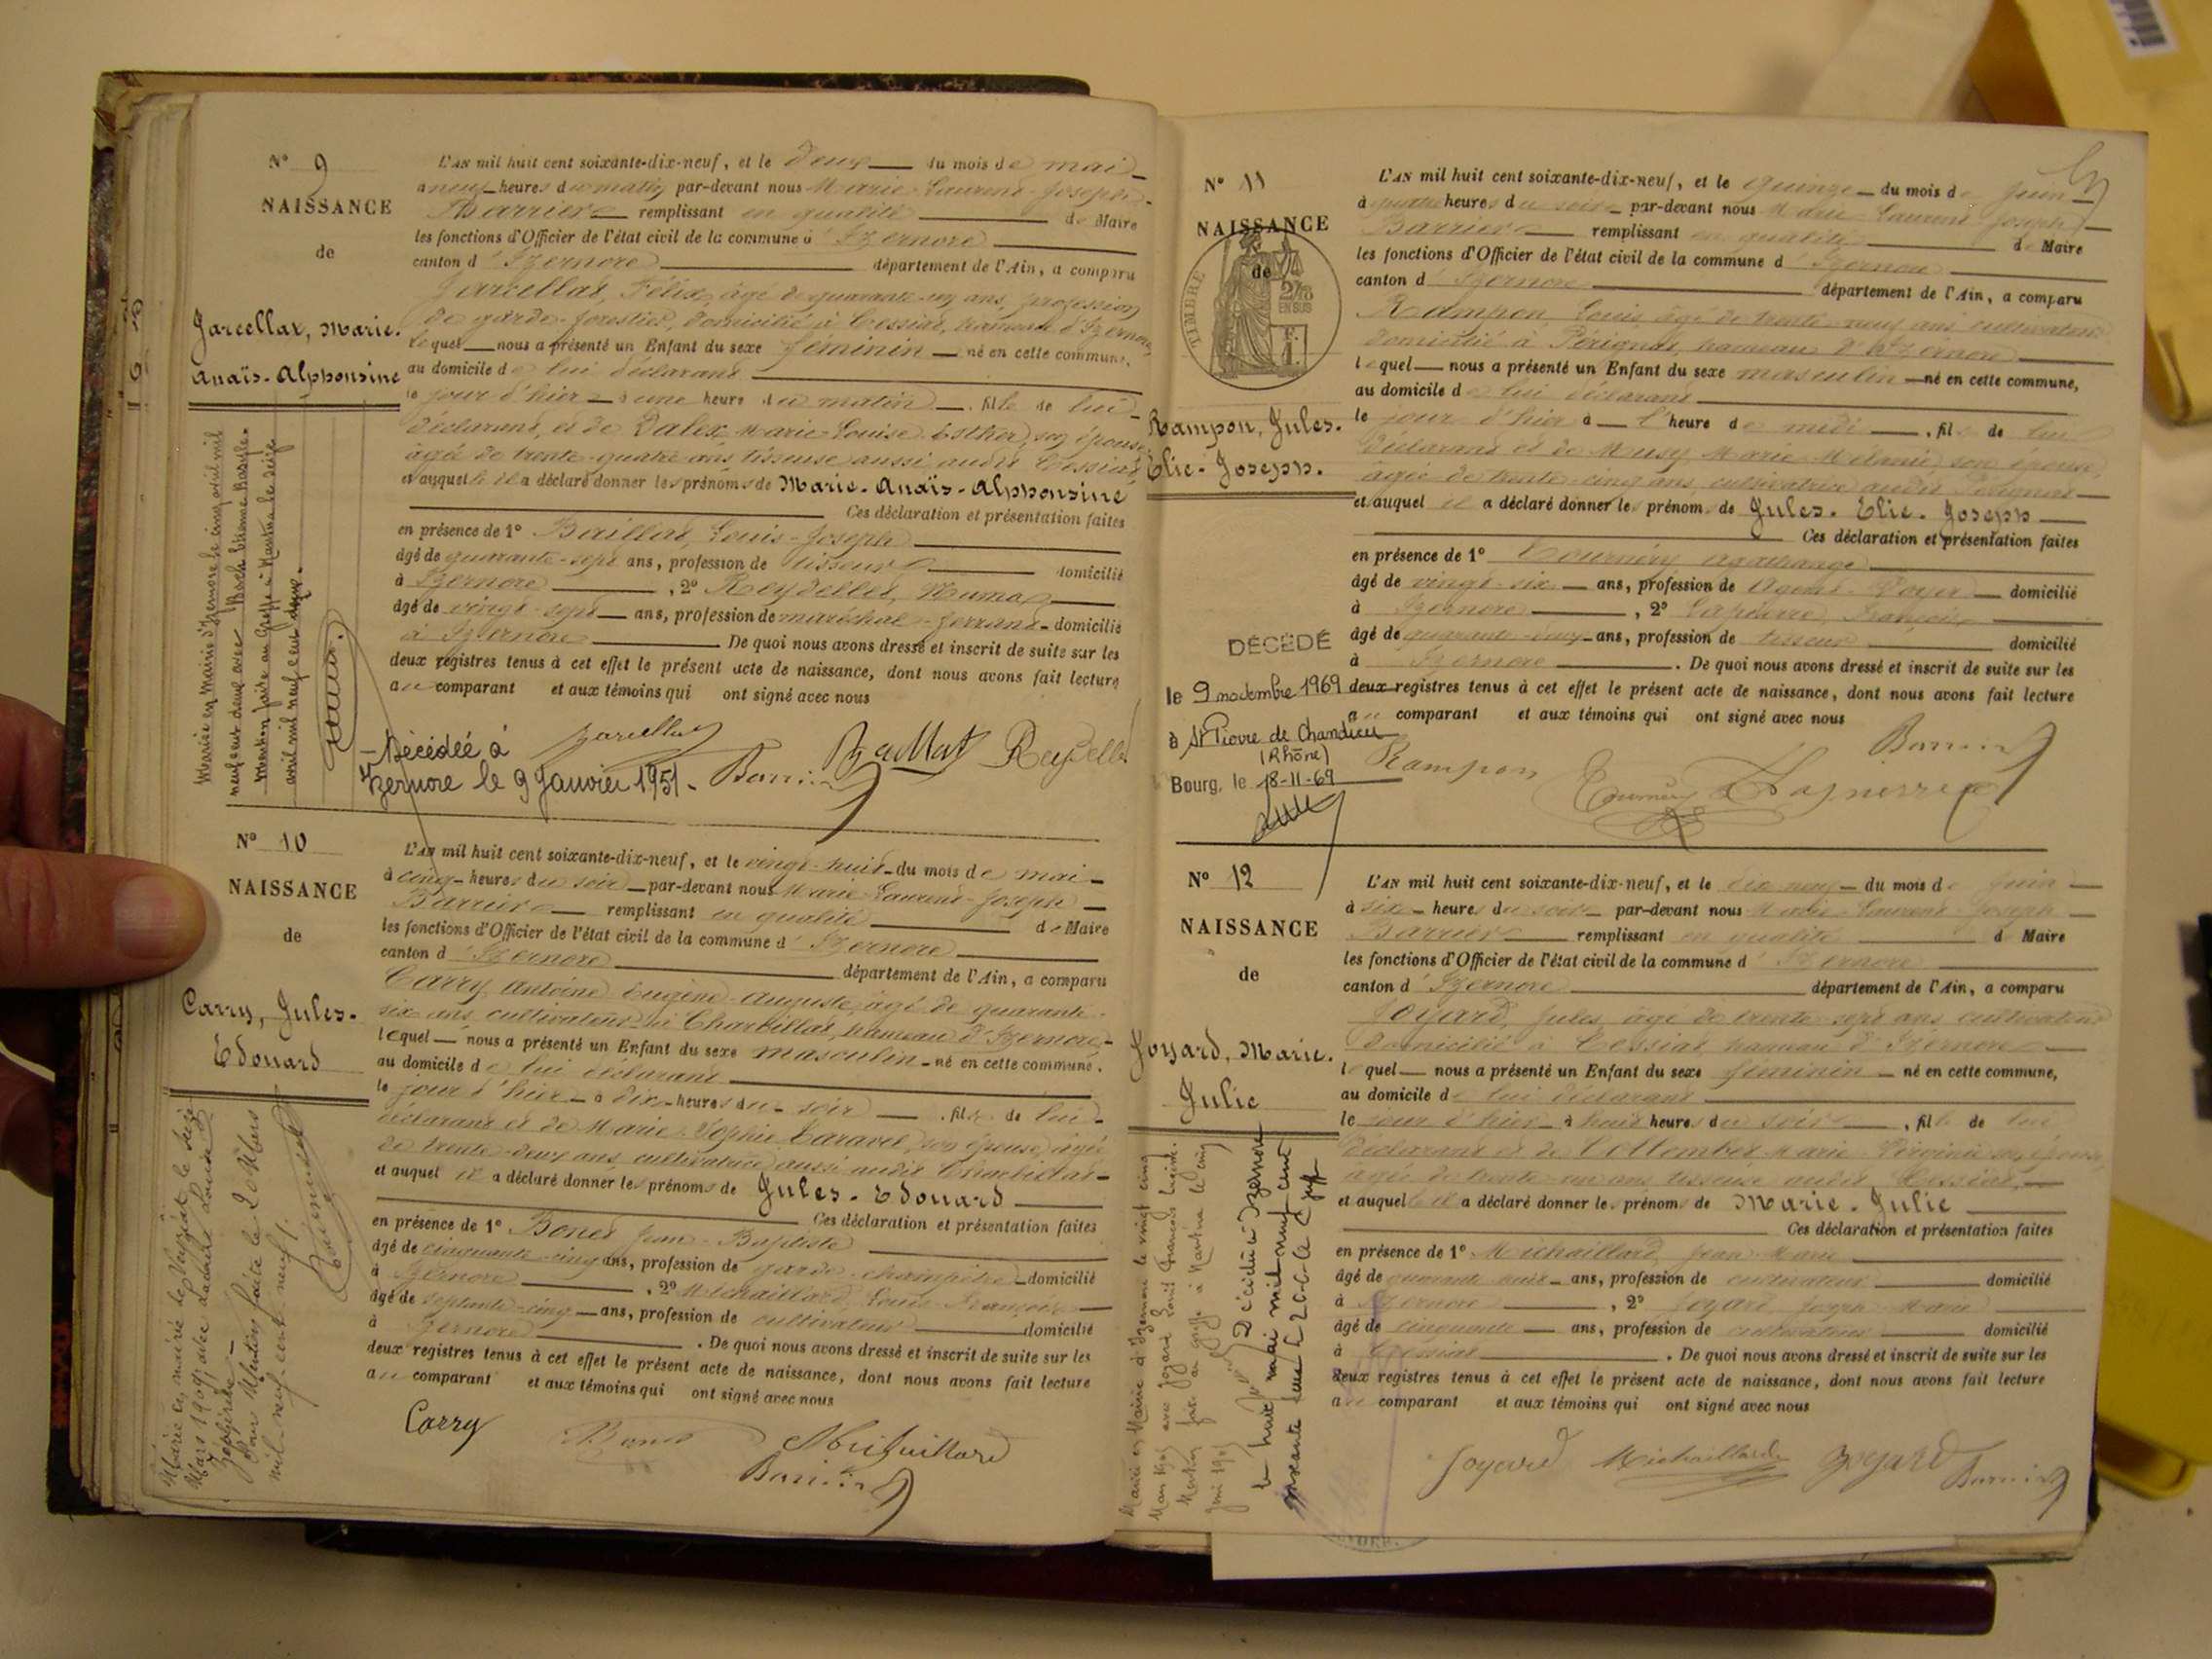 N° 9
NAISSANCE
de
Jarcellat, Marie.
Anaïs-Alphonsine
L'AN mil huit cent soixante-dix-neuf, et le deux du mois de mai
à neuf heures du matin par-devant nous Marie Laurent Joseph
Barrier remplissant en qualité de Maire
les fonctions d'Officier de l'état civil de la commune d'Izernore
canton d'Izernore département de l'Ain, a comparu
Jarcellat, Félix, âgé de quarante-un ans, profession
de garde-forestier, domicilié à Cessiat, hameau d'Izernore,
lequel nous a présenté un Enfant du sexe féminin né en cette commune,
au domicile de lui déclarant
le jour d'hier à une heure du matin, fille de lui
déclarant, et de Dalex, Marie Louise Esther, son épouse
âgée de trente-quatre ans tisseuse aussi audit Cessiat
et auquel il a déclaré donner les prénoms de Marie-Anaïs-Alphonsine
Ces déclaration et présentation faites
en présence de 1° Baillat, Louis-Joseph
âgé de quarante-sept ans, profession de tisseur domicilié
à Izernore, 2° Reydellet, Numa
âgé de vingt-sept ans, profession de maréchal-ferrant domicilié
à Izernore De quoi nous avons dressé et inscrit de suite sur les
deux registres tenus à cet effet le présent acte de naissance, dont nous avons fait lecture
au comparant et aux témoins qui ont signé avec nous
Jarcellat Barrier Baillat Reydellet
Décédée à
Izernore le 9 Janvier 1951.
Mariée en mairie d'Izernore le cinq avril mil
neuf cent deux avec
Mention faite au Greffe à Nantua le seize
avril mil neuf cent deux.
N° 10
NAISSANCE
de
Carry, Jules-
Edouard
L'AN mil huit cent soixante-dix-neuf, et le vingt-huit du mois de mai
à cinq heures du soir par-devant nous Marie Laurent Joseph
Barrier remplissant en qualité de Maire
les fonctions d'Officier de l'état civil de la commune d'Izernore
canton d'Izernore département de l'Ain, a comparu
Carry Antoine Eugène Auguste, âgé de quarante-
six ans, cultivateur à Charbillat, hameau d'Izernore,
lequel nous a présenté un Enfant du sexe masculin né en cette commune,
au domicile de lui déclarant
le jour d'hier à dix heures du soir, fils de lui
déclarant et de Marie Sophie Caravel, son épouse, âgée
de trente-deux ans, cultivatrice aussi audit Charbillat
et auquel il a déclaré donner les prénoms de Jules-Edouard
Ces déclaration et présentation faites
en présence de 1° Bonet Jean-Baptiste
âgé de cinquante-cinq ans, profession de garde-champêtre domicilié
à Izernore, 2° Michaillard, Louis-François
âgé de septante-cinq ans, profession de cultivateur domicilié
à Izernore. De quoi nous avons dressé et inscrit de suite sur les
deux registres tenus à cet effet le présent acte de naissance, dont nous avons fait lecture
au comparant et aux témoins qui ont signé avec nous
Carry Bonet Michaillard
Barrier
Marié en mairie de le seize
Mars 1909 avec Louise
Mention faite le 20 Mars
mil-neuf-cent-neuf.
N° 11
NAISSANCE
de
TIMBRE
2/10
EN SUS
Rampon, Jules.
Elie-Joseph.
L'AN mil huit cent soixante-dix-neuf, et le quinze du mois de Juin
à quatre heures du soir par-devant nous Marie Laurent Joseph
Barrier remplissant en qualité de Maire
les fonctions d'Officier de l'état civil de la commune d'Izernore
canton d'Izernore département de l'Ain, a comparu
Rampon, Louis âgé de trente-neuf ans cultivateur
domicilié à Pérignat, hameau d'Izernore
lequel nous a présenté un Enfant du sexe masculin né en cette commune,
au domicile de lui déclarant
le jour d'hier à l'heure de midi, fils de lui
déclarant et de Musy Marie Mélanie, son épouse,
âgée de trente-cinq ans, cultivatrice audit Pérignat
et auquel il a déclaré donner les prénoms de Jules-Elie-Joseph
Ces déclaration et présentation faites
en présence de 1° Tournéry
âgé de vingt-six ans, profession de Agent-Voyer domicilié
à Izernore, 2° Lapierre, François
âgé de quarante-deux ans, profession de tisseur domicilié
à Izernore. De quoi nous avons dressé et inscrit de suite sur les
deux registres tenus à cet effet le présent acte de naissance, dont nous avons fait lecture
au comparant et aux témoins qui ont signé avec nous
Rampon Barrier
DÉCÉDÉ
le 9 novembre 1969
à St Pierre de Chandieu
(Rhône)
Bourg, le 18-11-69
N° 12
NAISSANCE
de
Joyard, Marie.
Julie
L'AN mil huit cent soixante-dix-neuf, et le dix neuf du mois de Juin
à six heures du soir par-devant nous Marie Laurent Joseph
Barrier remplissant en qualité de Maire
les fonctions d'Officier de l'état civil de la commune d'Izernore
canton d'Izernore département de l'Ain, a comparu
Joyard, Jules, âgé de trente-sept ans cultivateur
domicilié à Cessiat, hameau d'Izernore
lequel nous a présenté un Enfant du sexe féminin né en cette commune,
au domicile de lui déclarant
le jour d'hier à huit heures du soir, fille de lui
déclarant et de Collombet Marie Virginie son épouse
âgée de trente-un ans tisseuse audit Cessiat
et auquel il a déclaré donner les prénoms de Marie-Julie
Ces déclaration et présentation faites
en présence de 1° Michaillard, Jean-Marie
âgé de quarante huit ans, profession de cultivateur domicilié
à Izernore, 2° Joyard Joseph Marie
âgé de cinquante ans, profession de cultivateur domicilié
à Cessiat. De quoi nous avons dressé et inscrit de suite sur les
deux registres tenus à cet effet le présent acte de naissance, dont nous avons fait lecture
au comparant et aux témoins qui ont signé avec nous
Joyard Michaillard Joyard Barrier
Mariée en Mairie d'Izernore le vingt cinq
avec Joyard Louis François
Mention faite au greffe à Nantua le cinq
Décédée à Izernore
le huit mai mil neuf cent
soixante